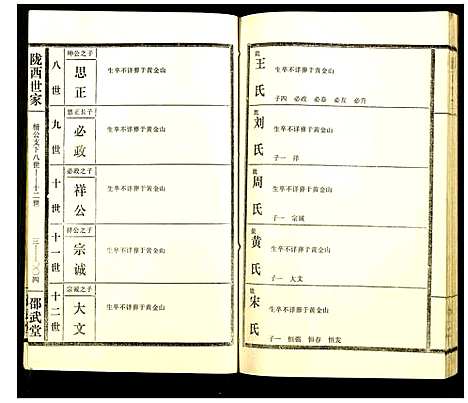 陇西世家
八世
坤公之子
思正
生卒不详葬于黄金山
九世
思正长子
必政
生卒不详葬于黄金山
十世
必政之子
祥公
生卒不详葬于黄金山
十一世
祥公之子
宗诚
生卒不详葬于黄金山
十二世
宗诚之子
大文
生卒不详葬于黄金山
邵武堂
王氏
生卒不详葬于黄金山
子四 必政 必嘉 必友 必升
刘氏
生卒不详葬于黄金山
子一 祥
周氏
生卒不详葬于黄金山
子一 宗诚
黄氏
生卒不详葬于黄金山
子一 大文
宋氏
生卒不详葬于黄金山